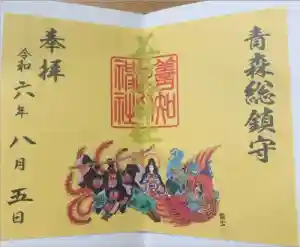 青森総鎮守
善知
神社
奉拝
令和六年八月五日